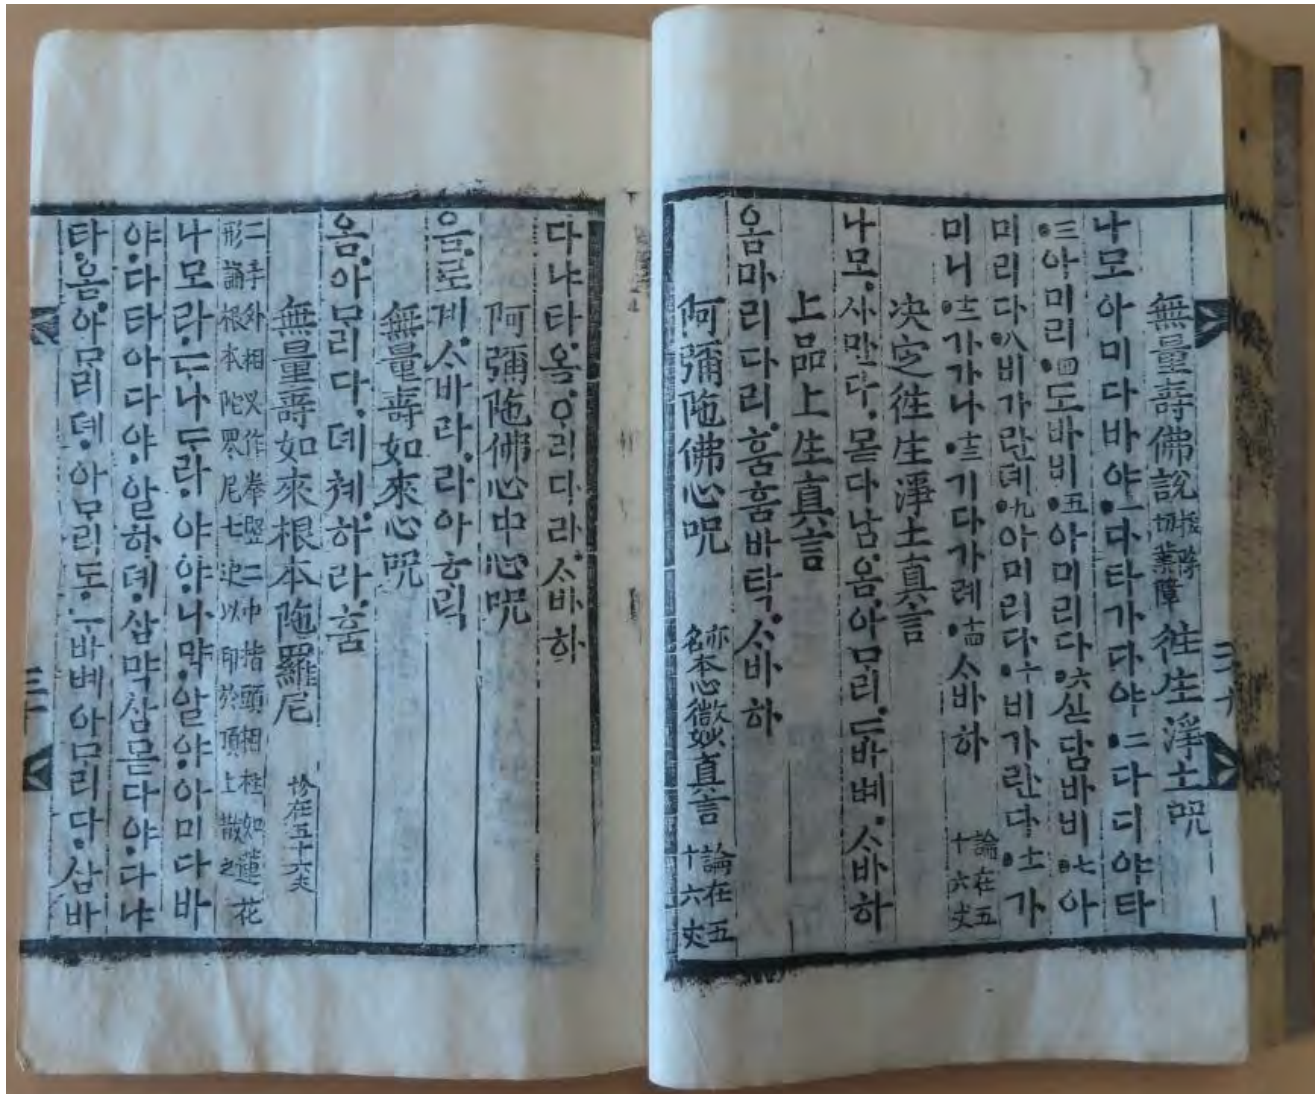 無量壽佛說 拔除切業障 往生淨土呪
나모아미다바야一다타가다야二다디야타
三아미리四도바비五아미리다六싣담바비七아
미리다八비가란뎨九아미리다十비가란다十一가
미니十二가가나十三기다가례十四ᄉᆞ바하 論在五十六丈
決定往生淨土真言
나모.사만다.못다남.옴.아무리.ᄃᆞ바볘.ᄉᆞ바하
上品上生真言
옴마리다리.훔훔바탁.ᄉᆞ바하
阿彌陁佛心呪 亦名本心微妙真言 論在五十六丈
다냐타.옴.아리다라.ᄉᆞ바하
阿彌陁佛心中心呪
옴.로계.ᄉᆞ바라.라아ᄒᆞ릭
無量壽如來心呪
옴.아무리다.뎨체.하라.훔
無量壽如來根本陁羅尼 在五十六丈
二手外相叉作拳竪二中指頭相柱如蓮花
形誦根本陀罗尼七遍以印於頂上散之
나모라.ᄃᆞ나ᄃᆞ라.야야.나막.알야.아미다바
야.다타아다야.알하뎨.삼먁삼몯다야.다냐
타.옴.아무리뎨.아무리도.바볘.아무리다.삼바